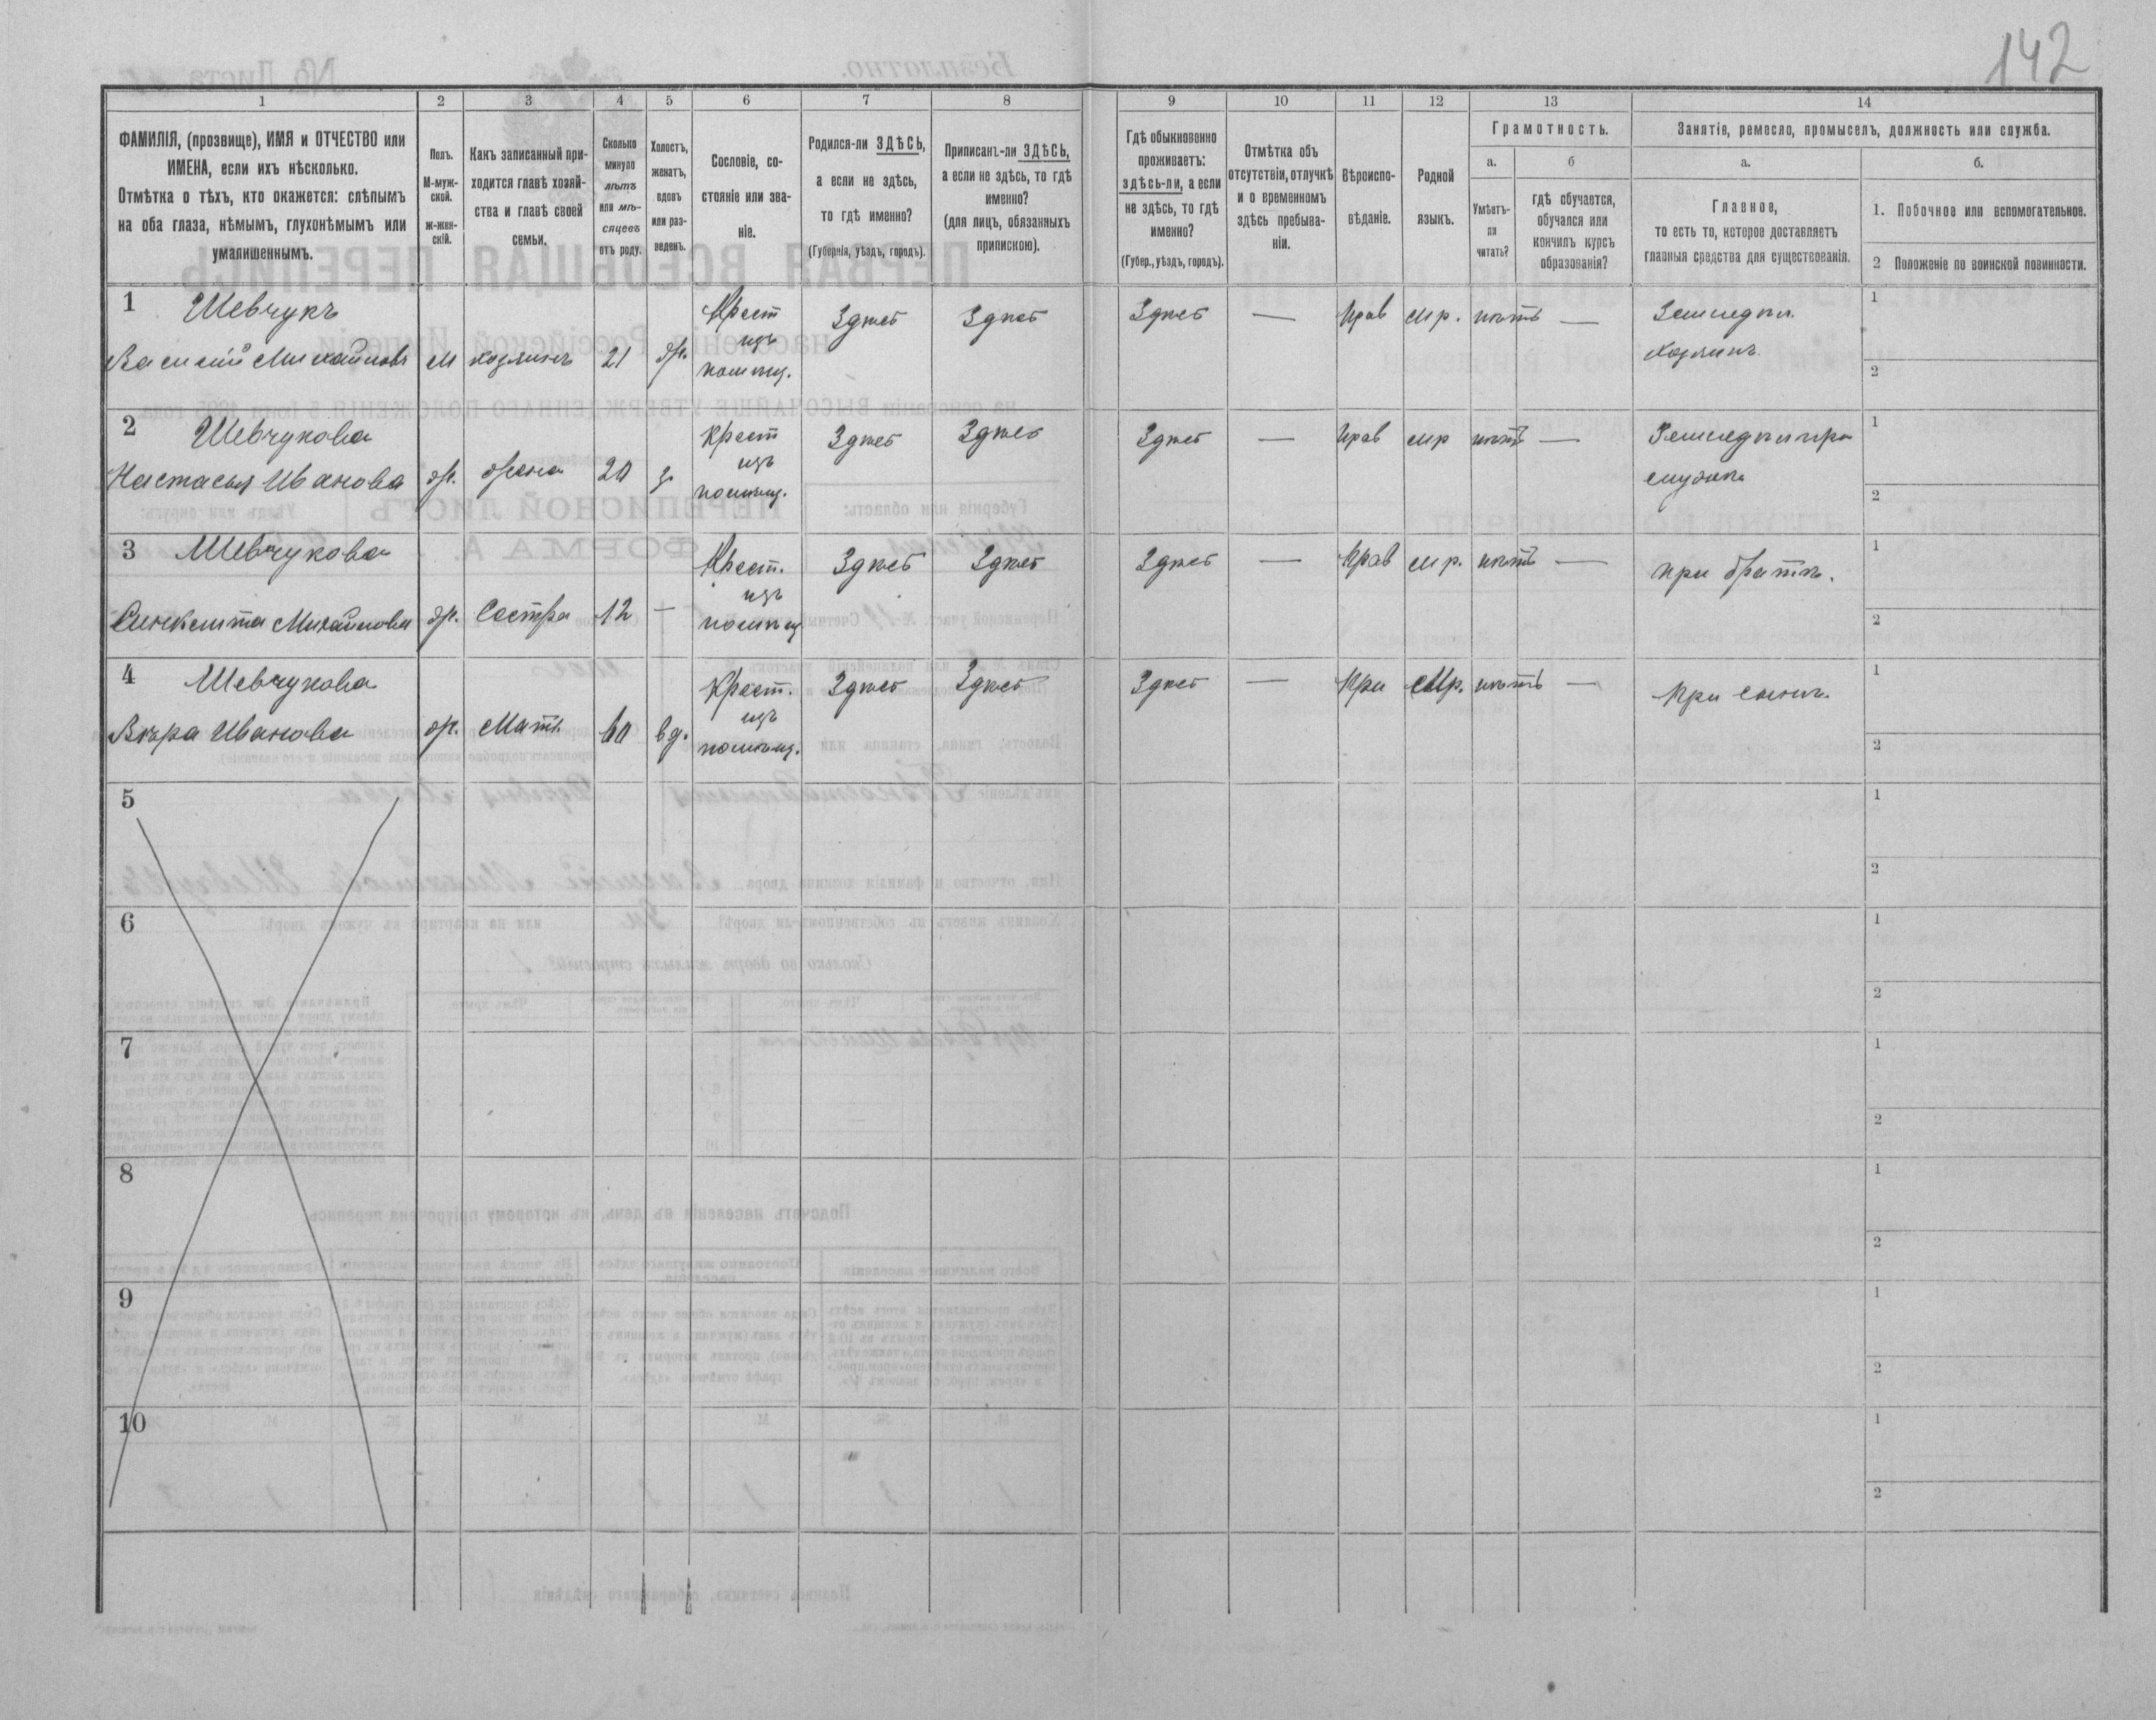 142
1 2 3 4 5 6 7 8 9 10 11 12 13 14
ФАМИЛІЯ, (прозвище), ИМЯ и ОТЧЕСТВО или
ИМЕНА, если ихъ нѣсколько.
Отмѣтка о тѣхъ, кто окажется: слѣпымъ
на оба глаза, нѣмымъ, глухонѣмымъ или
умалишеннымъ.
Полъ.
М-муж-
ской.
ж-жен-
скій.
Какъ записанный при-
ходится главѣ хозяй-
ства и главѣ своей
семьи.
Сколько
минуло
лѣтъ
или мѣ-
сяцевъ
отъ роду.
Холостъ,
женатъ,
вдовъ
или раз-
веденъ.
Сословіе, со-
стояніе или зва-
ніе.
Родился-ли ЗДѢСЬ,
а если не здѣсь,
то гдѣ именно?
(Губернія, уѣздъ, городъ).
Приписанъ-ли ЗДѢСЬ,
а если не здѣсь, то гдѣ
именно?
(для лицъ, обязанныхъ
припискою).
Гдѣ обыкновенно
проживаетъ:
здѣсь-ли, а если
не здѣсь, то гдѣ
именно?
(Губер., уѣздъ, городъ).
Отмѣтка объ
отсутствіи, отлучкѣ
и о временномъ
здѣсь пребыва-
ніи.
Вѣроиспо-
вѣданіе.
Родной
языкъ.
Грамотность.
а.
Умѣетъ-
ли
читать?
б
гдѣ обучается,
обучался или
кончилъ курсъ
образованія?
Занятіе, ремесло, промыселъ, должность или служба.
а.
Главное,
то есть то, которое доставляетъ
главныя средства для существованія.
б.
1. Побочное или вспомогательное.
2 Положеніе по воинской повинности.
1 Шевчукъ Крест Здѣсь Здѣсь Здѣсь — Прав мр. нѣтъ — Земледѣл. 1
Василій Михайловъ м хозяинъ 21 ж. изъ помѣщ. хозяинъ 2
2 Шевчукова Крест Здѣсь Здѣсь Здѣсь — Прав мр нѣтъ — 1
Настасья Иванова ж. жена 20 з. изъ помѣщ. 2
3 Шевчукова Крест. Здѣсь Здѣсь Здѣсь — Прав мр. нѣтъ — при братѣ. 1
Михайлова ж. Сестра 12 — изъ помѣщ 2
4 Шевчукова Крест. Здѣсь Здѣсь Здѣсь — Мр. нѣтъ — При сынѣ. 1
Вѣра Иванова ж. Мать 60 вд. изъ помѣщ. 2
5 1
2
6 1
2
7 1
2
8 1
2
9 1
2
10 1
2